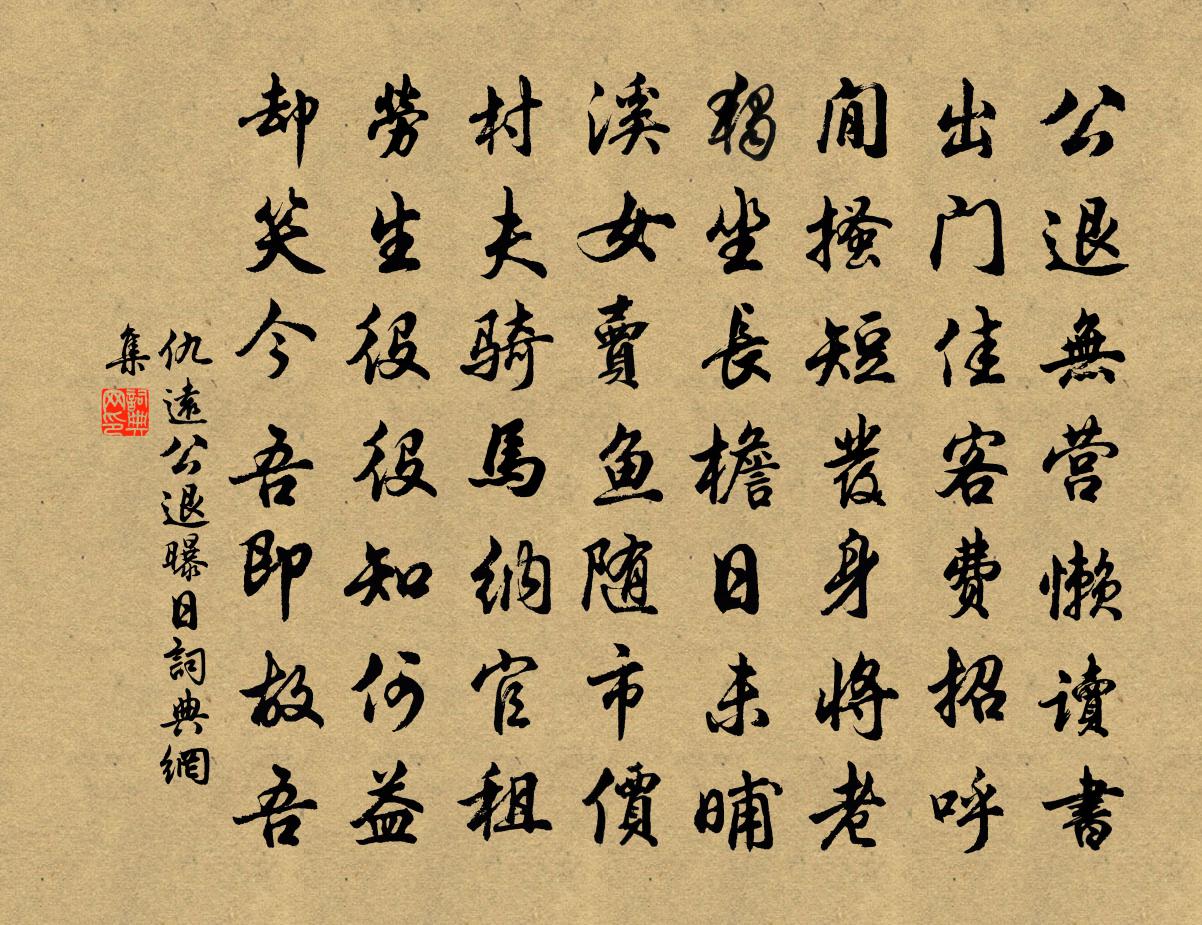 公退無营懶讀書
出门佳客費招呼
閒搔短发身將老
獨坐長檐日未晡
溪女賣鱼随市價
村夫騎馬納官租
勞生役役知何益
却笑今吾即故吾
仇遠公退曝日詞典網
集
詞典网印